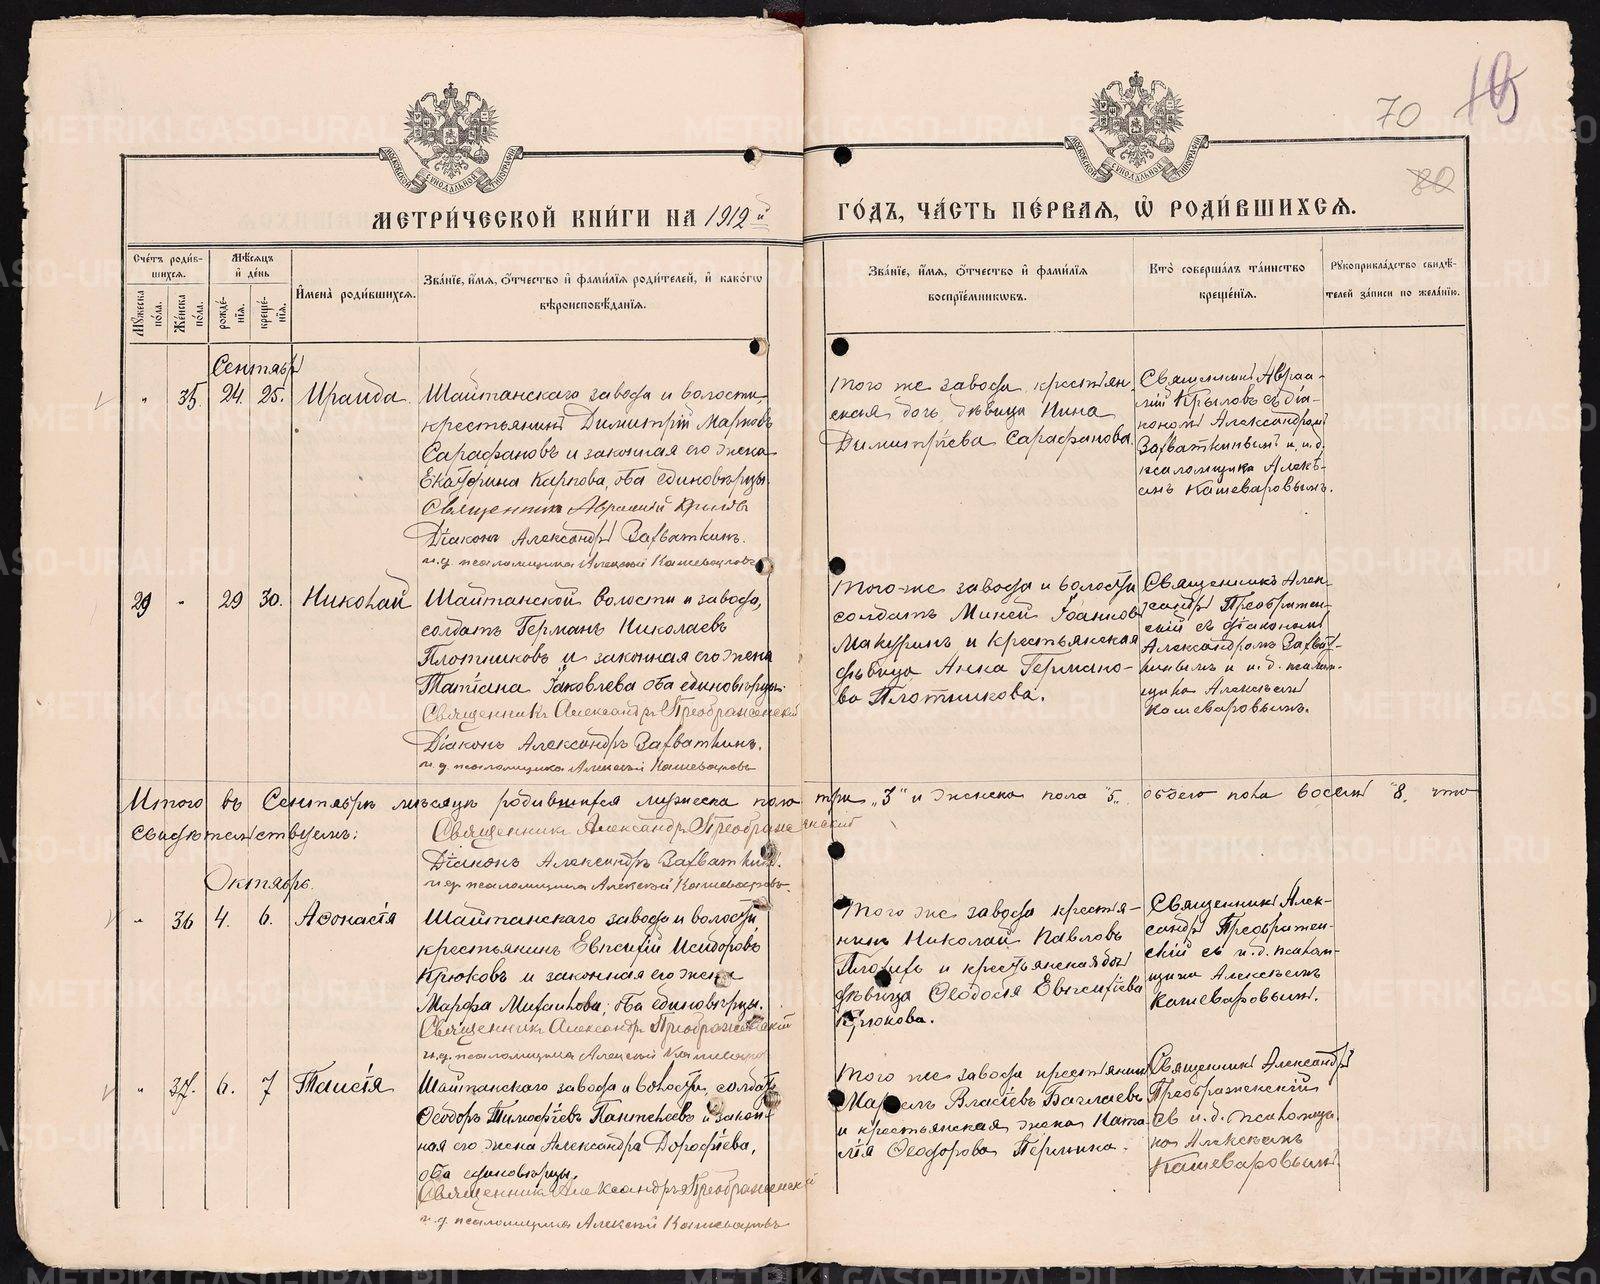 70
80
МЕТРИ́ЧЕСКОЙ КНИ́ГИ НА 1912 й
ГО́ДЪ, ЧА́СТЬ ПЕ́РВАЯ, Ѡ РОДИ́ВШИХСЯ.
Сче́тъ роди́в-
шихся.
Мꙋ́жеска по́ла.
Же́нска по́ла.
Мѣ́сяцъ и҆ де́нь
рожде́нїя.
креще́нїя.
И҆мена̀ роди́вшихся.
Зва́нїе, и҆́мя, ѻ҆́тчество и҆ фами́лїя роди́телей, и҆ како́гѡ
вѣроисповѣ́данїя.
Зва́нїе, и҆́мя, ѻ҆́тчество и҆ фами́лїя
воспрїе́мникѡвъ.
Кто̀ соверша́лъ та́инство
креще́нїя.
Рꙋкоприкла́дство свидѣ́-
телей за́писи по жела́нїю.
Сентябрь
" 35. 24. 25. Ираида.
Шайтанскаго завода и волости,
крестьянинъ Димитрій Марковъ
Сарафановъ и законная его жена
Екатерина Карпова, оба единовѣрцы.
Священникъ Аврамій Крыловъ
Діаконъ Александръ Захваткинъ.
и.д. псаломщика Алексѣй Кашеваровъ
того же завода крестьян-
ская дочь дѣвица Нина
Димитріева Сарафанова.
Священникъ Авра-
мій Крыловъ съ діа-
кономъ Александромъ
Захваткинымъ и и.д.
псаломщика Алексѣ-
емъ Кашеваровымъ.
29 " 29 30. Николай
Шайтанской волости и завода,
солдатъ Германъ Николаевъ
Плотниковъ и законная его жена
Татіана Іаковлева оба единовѣрцы.
Священникъ Александръ Преображенскій
Діаконъ Александръ Захваткинъ.
и.д. псаломщика Алексѣй Кашеваровъ
Того-же завода и волости
солдатъ Іоанновъ
и крестьянская
дѣвица Анна Германо-
ва Плотникова.
Священникъ Алек-
сандръ Преображен-
скій съ діакономъ
Александромъ Захват-
кинымъ и и.д. псалом-
щика Алексѣемъ
Кашеваровымъ.
Итого въ Сентябрѣ мѣсяцѣ родившихся мужеска пола три „3" и женска пола "5„ обоего пола восемь "8„ что
свидѣтельствуемъ:
Священникъ Александръ Преображенскій
Діаконъ Александръ Захваткинъ.
и.д. псаломщика Алексѣй Кашеваровъ.
Октябрь.
" 36 4. 6. Аѳонасія
Шайтанскаго завода и волости
крестьянинъ Евѳимій Исидоровъ
Крюковъ и законная его жена
Марфа Михаилова, оба единовѣрцы.
Священникъ Александръ Преображенскій
и.д. псаломщика Алексѣй Кашеваровъ
Того же завода крестья-
нинъ Николай Павловъ
и крестьянская дочь
дѣвица Ѳеодосія Евѳиміева
Крюкова.
Священникъ Алек-
сандръ Преображен-
скій съ и.д. псалом-
щика Алексѣемъ
Кашеваровымъ.
" 37. 6. 7 Таисія
Шайтанскаго завода и волости, солдатъ
Ѳеодоръ Тимофѣевъ Пантелеевъ и закон-
ная его жена Александра Дорофѣева,
оба единовѣрцы.
Священникъ Александръ Преображенскій
и.д. псаломщика Алексѣй Кашеваровъ
того же завода крестьянинъ
Власіевъ
и крестьянская жена Ната-
лія Ѳеодорова Пермина.
Священникъ Александръ
Преображенскій
съ и.д. псаломщи-
ка Алексѣемъ
Кашеваровымъ.
METRIKI.GASO-URAL.RU